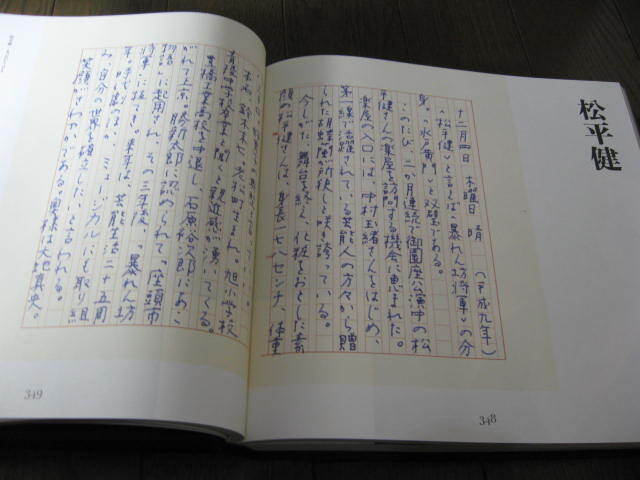 松平健
十二月四日 木曜日 晴 (平成九年)
〈松平健〉と言えば〈暴れん坊将軍〉の分
身。〈水戸黄門〉と双璧である。
このたび、二か月連続で御園座公演中の松
平健さんの楽屋を訪問する機会に恵まれた。
楽屋の入口には、中村玉緒さんをはじめ、
第一線で活躍されている芸能人の方々から贈
られた胡蝶蘭が所狭しと咲き誇っている。
今しがた、舞台を終え、化粧をおとした素
顔の松平健さんは、身長一七八センチ、体重
348
本名、鈴木
旭小学校、
青陵中学校卒業と聞くと
親近感が湧いてくる。
豊橋工業高校を中退し、石原裕次郎にあこ
がれて上京。勝新太郎に認められて「座頭市
物語」に起用され、その三年後、「暴れん坊
将軍」に抜てき。来年は、芸能生活二十五周
年。
時代劇
ミュージカルにも取り組
み、自分の世界を積立したいと言われる。
笑顔がさわやかである。奥様は大地真央。
349